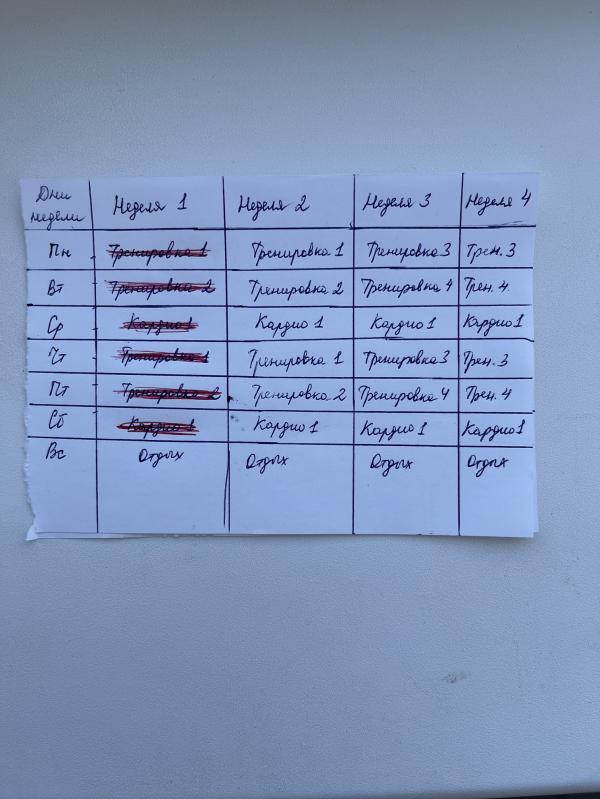 Дни недели Неделя 1 Неделя 2 Неделя 3 Неделя 4
Пн Тренировка 1 Тренировка 1 Тренировка 3 Трен. 3
Вт Тренировка 2 Тренировка 2 Тренировка 4 Трен. 4
Ср Кардио 1 Кардио 1 Кардио 1 Кардио 1
Чт Тренировка 1 Тренировка 1 Тренировка 3 Трен. 3
Пт Тренировка 2 Тренировка 2 Тренировка 4 Трен. 4
Сб Кардио 1 Кардио 1 Кардио 1 Кардио 1
Вс Отдых Отдых Отдых Отдых